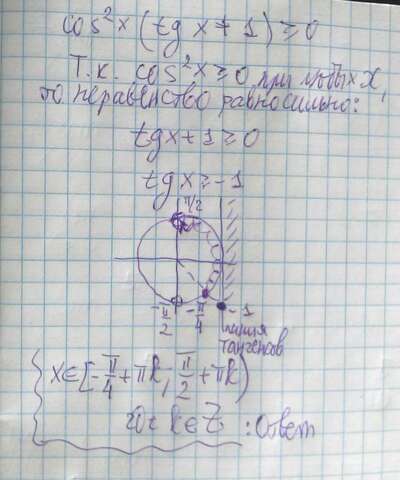 cos²x (tg x + 1) ≥ 0
Т.к. cos²x ≥ 0 при любых x,
то неравенство равносильно:
tg x + 1 ≥ 0
tg x ≥ -1
π/2
-π/2
-π/4
-1
линия
тангенсов
x∈[-π/4+πk; π/2+πk)
где k∈Z :Ответ